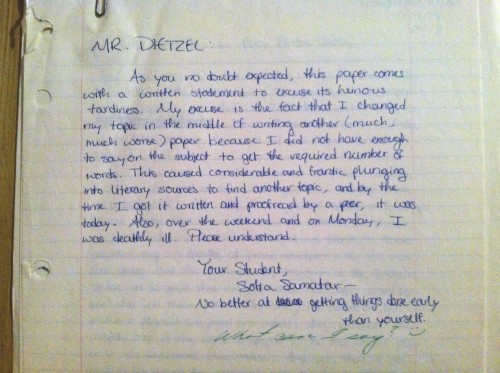 MR. DIETZEL:
As you no doubt expected, this paper comes
with a written statement to excuse its heinous
tardiness. My excuse is the fact that I changed
my topic in the middle of writing another (much,
much worse) paper because I did not have enough
to say on the subject to get the required number of
words. This caused considerable and frantic plunging
into literary sources to find another topic, and by the
time I got it written and proofread by a peer, it was
today. Also, over the weekend and on Monday, I
was deathly ill. Please understand.
Your Student,
Sofia Samatar —
No better at getting things done early
than yourself.
What can I say?